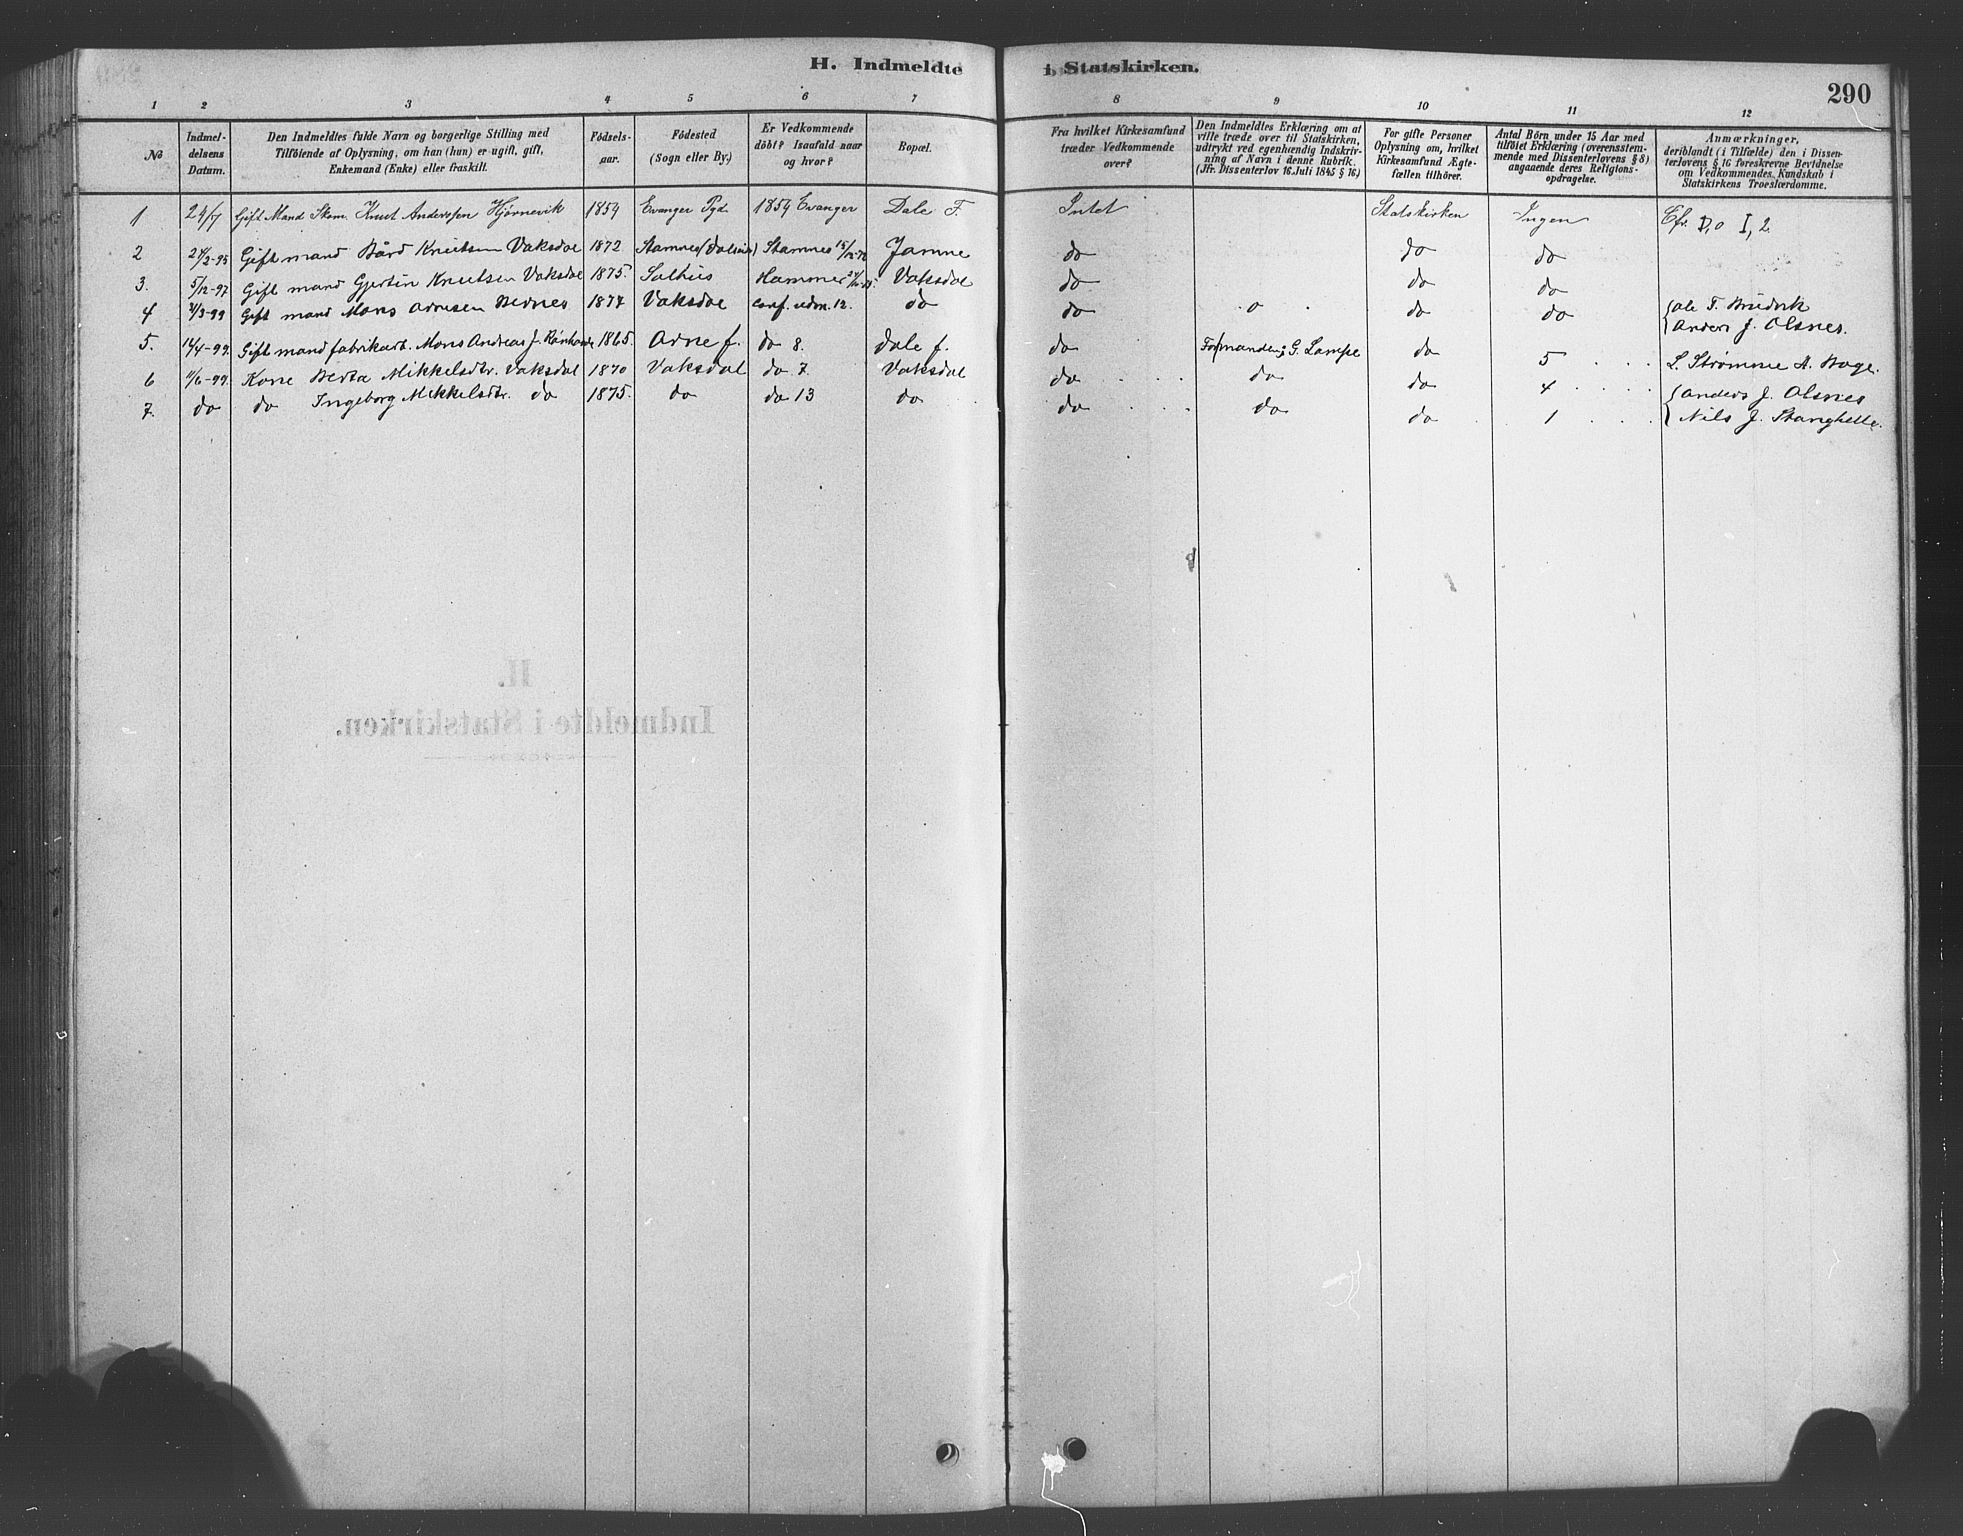 H. Indmeldte i Statskirken.
290
1 2 3 4 5 6 7 8 9 10 11 12
No
Indmeldelsens Datum.
Den Indmeldtes fulde Navn og borgerlige Stilling med
Tilföiende af Oplysning, om han (hun) er ugift, gift,
Enkemand (Enke) eller fraskilt.
Födsels-
aar.
Födested
(Sogn eller By.)
Er Vedkommende
döbt? Isaafald naar
og hvor?
Bopæl.
Fra hvilket Kirkesamfund
træder Vedkommende
over?
Den Indmeldtes Erklæring om at
ville træde over til Statskirken,
udtrykt ved egenhændig Indskriv-
ning af Navn i denne Rubrik.
(Jfr. Dissenterlov 16. Juli 1845 § 16)
For gifte Personer
Oplysning om, hvilket
Kirkesamfund Ægte-
fællen tilhörer.
Antal Börn under 15 Aar med
tilföiet Erklæring (overensstem-
mende med Dissenterlovens § 8)
angaaende deres Religions-
opdragelse.
Anmærkninger,
deriblandt (i Tilfælde) den i Dissen-
terlovens § 16 foreskrevne Bevidnelse
om Vedkommendes Kundskab i
Statskirkens Troeslærdomme.
1 24/7 Gift Mand Knut Anderssen Hjørnevik 1854 Evanger Pgd 1854 Evanger Dale F. Intet Statskirken Ingen Cfr. I, 2
2 Gift mand Bård Knutsen Vaksdal 1872 Stamnes Stamnes Jamne do do do
3. 5/12-97 Gift mand Gjertin Knutsen Vaksdal 1875. Salhus Hammer Vaksdal do do do
4 Gift mand Mons Arnesen Bernes 1877 Vaksdal conf. udm. 12. do do o do do { Ole T.
Anders J. Olsnes.
5. 14/4-99. Gift mand fabrikarb. Mons Andreas J. 1865. Arne f. do 8. Dale f. do Formanden: G. Lampe do 5 L. Strømme A. Boge.
6 11/6-99. Kone Berta Mikkelsdtr. Vaksdal 1870 Vaksdal do 7 Vaksdal do do do 4 { Anders J. Olsnes
7. do do Ingeborg Mikkelsdtr. do 1875. do do 13 do do do do 1 Nils J. Stanghelle.
H.
Indmeldte i Statskirken.